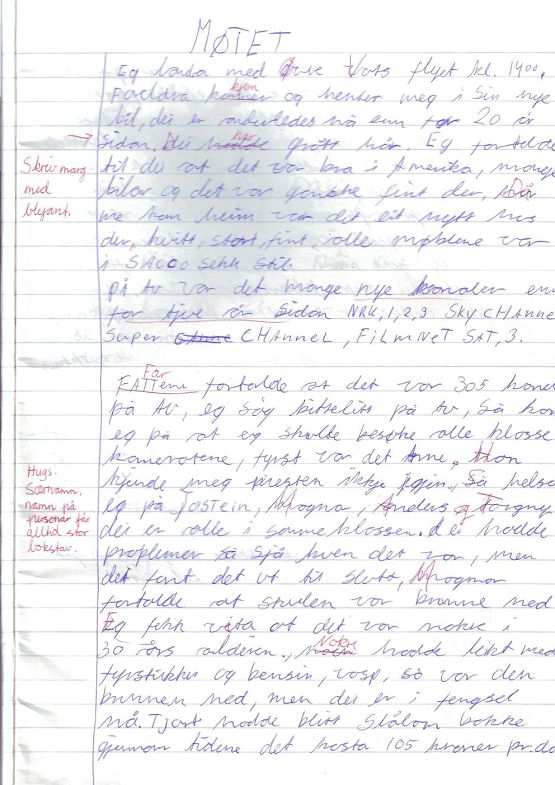 MØTET
Eg landa med Ørve Vats flyet kl. 1400.
Foeldra kjem og henter meg i sin nye
bil, dei er annledes nå enn for 20 år
→ sidan. Dei har grått hår. Eg fortalde
Skriv marg
til dei at det var bra i Amerika, mange
med
bilar og det var ganske fint der, Då
blyant.
me kom heim var det eit nytt hus
der, kvitt, stort, fint, alle møblene var
i SACCO sekk stil.
på tv var det mange nye kanaler enn
for tjue år sidan NRK,1,2,3 SKY CHANNE
SUPER CHANNEL, FILMNET SAT,3.
Far
FATTERN fortalde at det var 305 kana
på tv, eg såg bittelitt på tv, så kom
eg på at eg skulle besøke alle klasse
kameratene, fyrst var det Arne, Han
Hugs.
kjende meg presten ikkje igjen, Så helsa
Særnamn,
eg på Jostein, Magna, Anders og Torgny
namn på
personar får
dei er alle i samme klassen. dei hadde
alltid stor
problemer så sjå kven det var, men
bokstav.
dei fant det ut til slutt, Magnar
fortalde at skulen var brunne ned
Eg fekk vita at det var nokre i
30 års alderen, Nokre hadde lekt med
fyrstikker og bensin, vasp, så var den
brunnen ned, men dei er i fengsel
nå. Tjart hadde blitt Slålom bakke
gjennom tidene det kosta 105 kroner pr.da